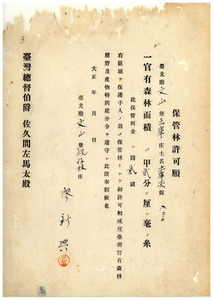 保管林許可願
臺北廳文山堡 庄土名
一官有森林面積 甲貳分 厘 毫 糸
此保管料金 圓貳 錢
右區域ヲ保護手入ノ爲メ保管林トシテ御許可相成度臺灣官有森林
原野及產物特別處分令ヲ遵守シ此段奉願候也
大正 年 月 日
臺北廳文山堡 庄
廖新
臺灣總督伯爵 佐久間左馬太殿